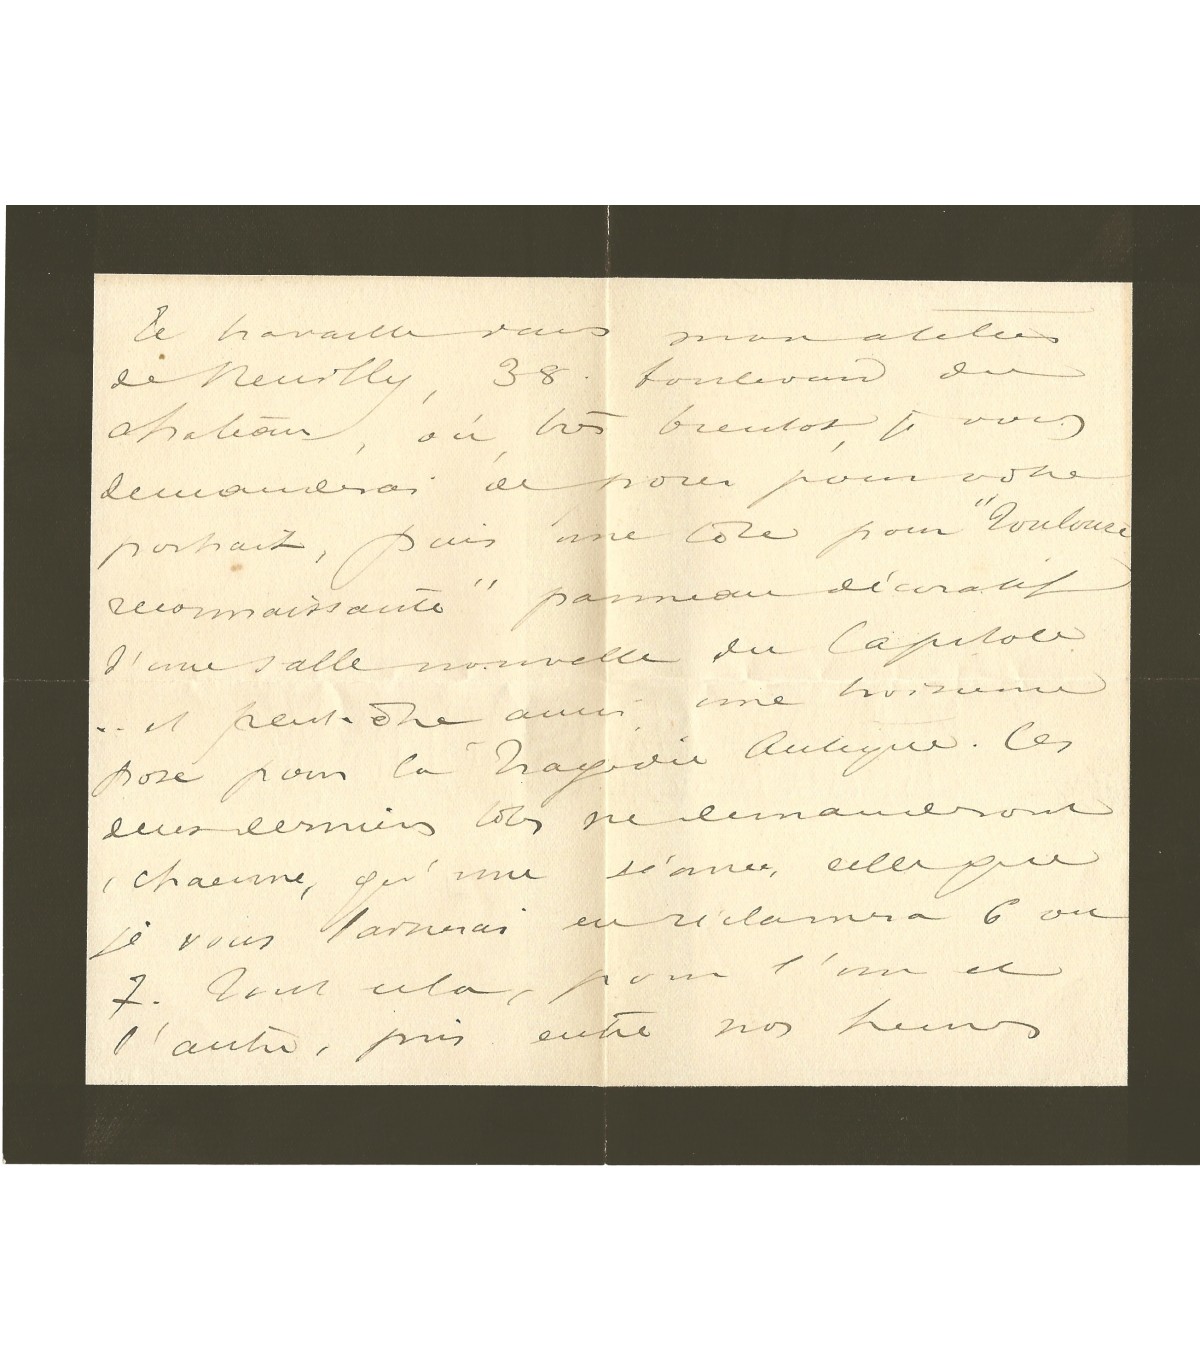 Je travaille dans mon atelier
de Neuilly, 38. boulevard du
château, où, très bientôt, je vous
demanderai de poser pour votre
portrait, puis une tête pour "Toulouse
reconnaissante" panneau décoratif
d'une salle nouvelle du Capitole
.. et peut-être aussi une troisième
pose pour la Tragédie Antique. Ces
deux dernières têtes ne demanderont
, chacune, qu'une séance, celle que
je vous donnerai en réclamera 6 ou
7. Tout cela, pour l'un et
l'autre, pris entre nos heures